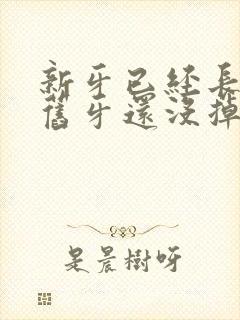 新牙已經長
舊牙還沒掉
是晨樹呀